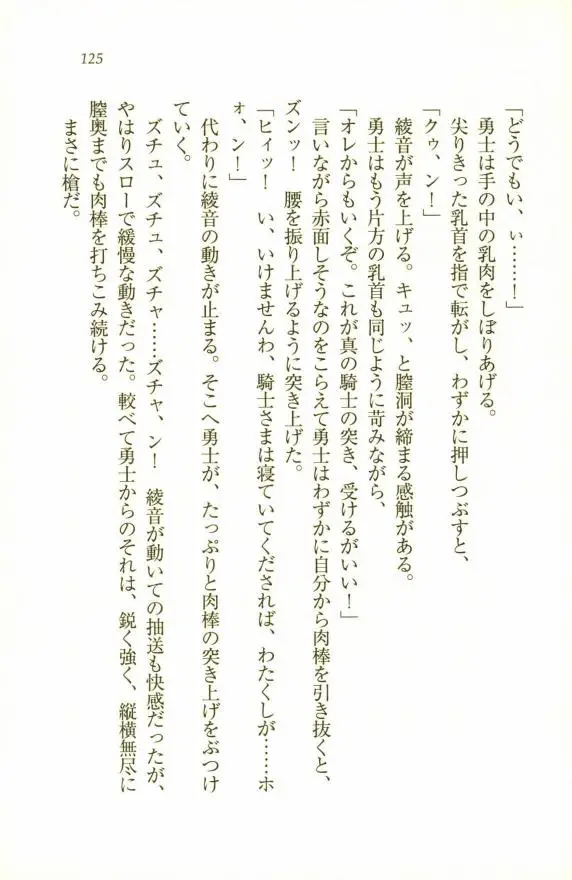 125
「どうでもい、ぃ……！」
勇士は手の中の乳肉をしぼりあげる。
尖りきった乳首を指で転がし、わずかに押しつぶすと、
「クゥ、ン！」
綾音が声を上げる。キュッ、と膣洞が締まる感触がある。
勇士はもう片方の乳首も同じように苛みながら、
「オレからもいくぞ。これが真の騎士の突き、受けるがいい！」
言いながら赤面しそうなのをこらえて勇士はわずかに自分から肉棒を引き抜くと、
ズンッ！　腰を振り上げるように突き上げた。
「ヒィッ！　い、いけませんわ、騎士さまは寝ていてくだされば、わたくしが……ホ
ォ、ン！」
代わりに綾音の動きが止まる。そこへ勇士が、たっぷりと肉棒の突き上げをぶつけ
ていく。
ズチュ、ズチュ、ズチャ……ズチャ、ン！　綾音が動いての抽送も快感だったが、
やはりスローで緩慢な動きだった。較べて勇士からのそれは、鋭く強く、縦横無尽に
膣奥までも肉棒を打ちこみ続ける。
まさに槍だ。